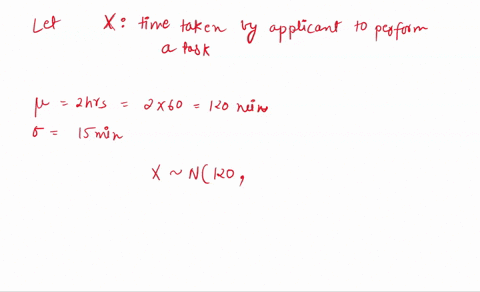 Let X: time taken by applicant to perform
a task
μ = 2hrs = 2x60 = 120 min
σ = 15min
X ~ N(120,